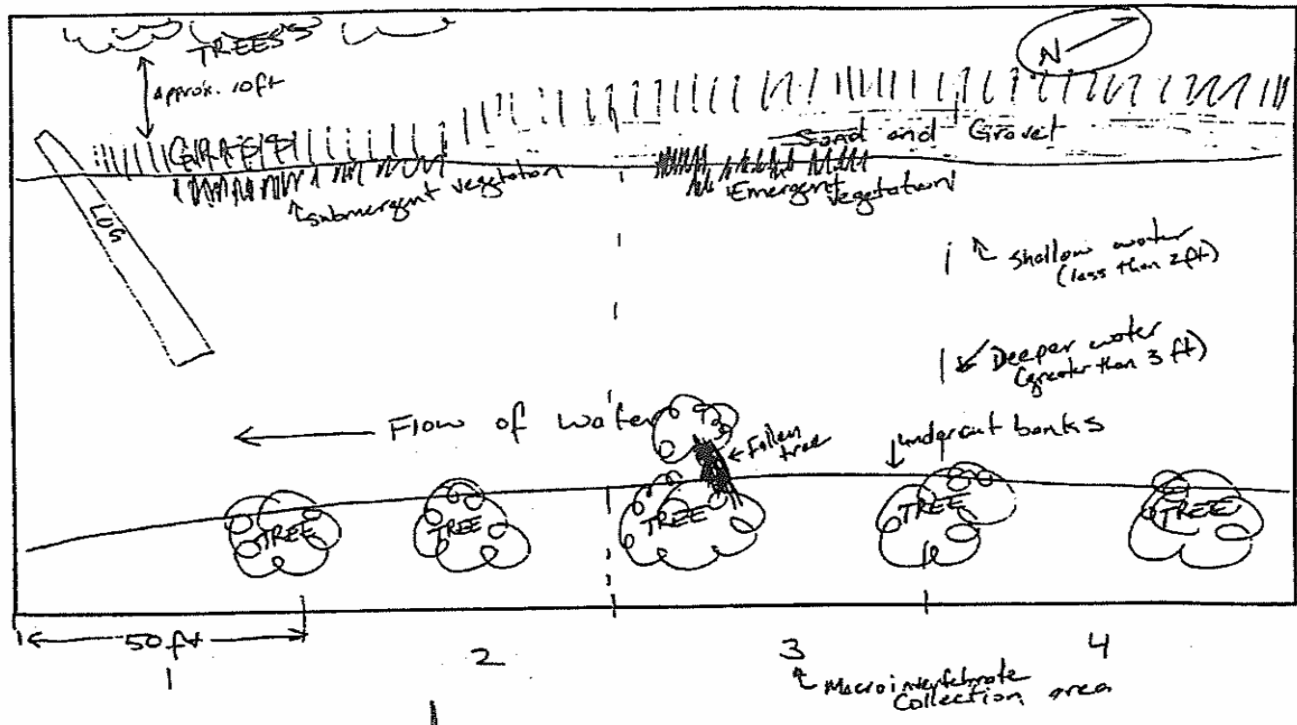 TREES
N
Approx. 10ft
GRASS
Sand and Gravel
Submergent vegetation
Emergent
vegetation
LOG
Shallow water
(less than 2ft)
Deeper water
(greater than 3 ft)
Flow of water
Fallen
tree
undercut banks
TREE
TREE
TREE
TREE
TREE
50 ft
1
2
3
4
Macroinvertebrate
Collection area